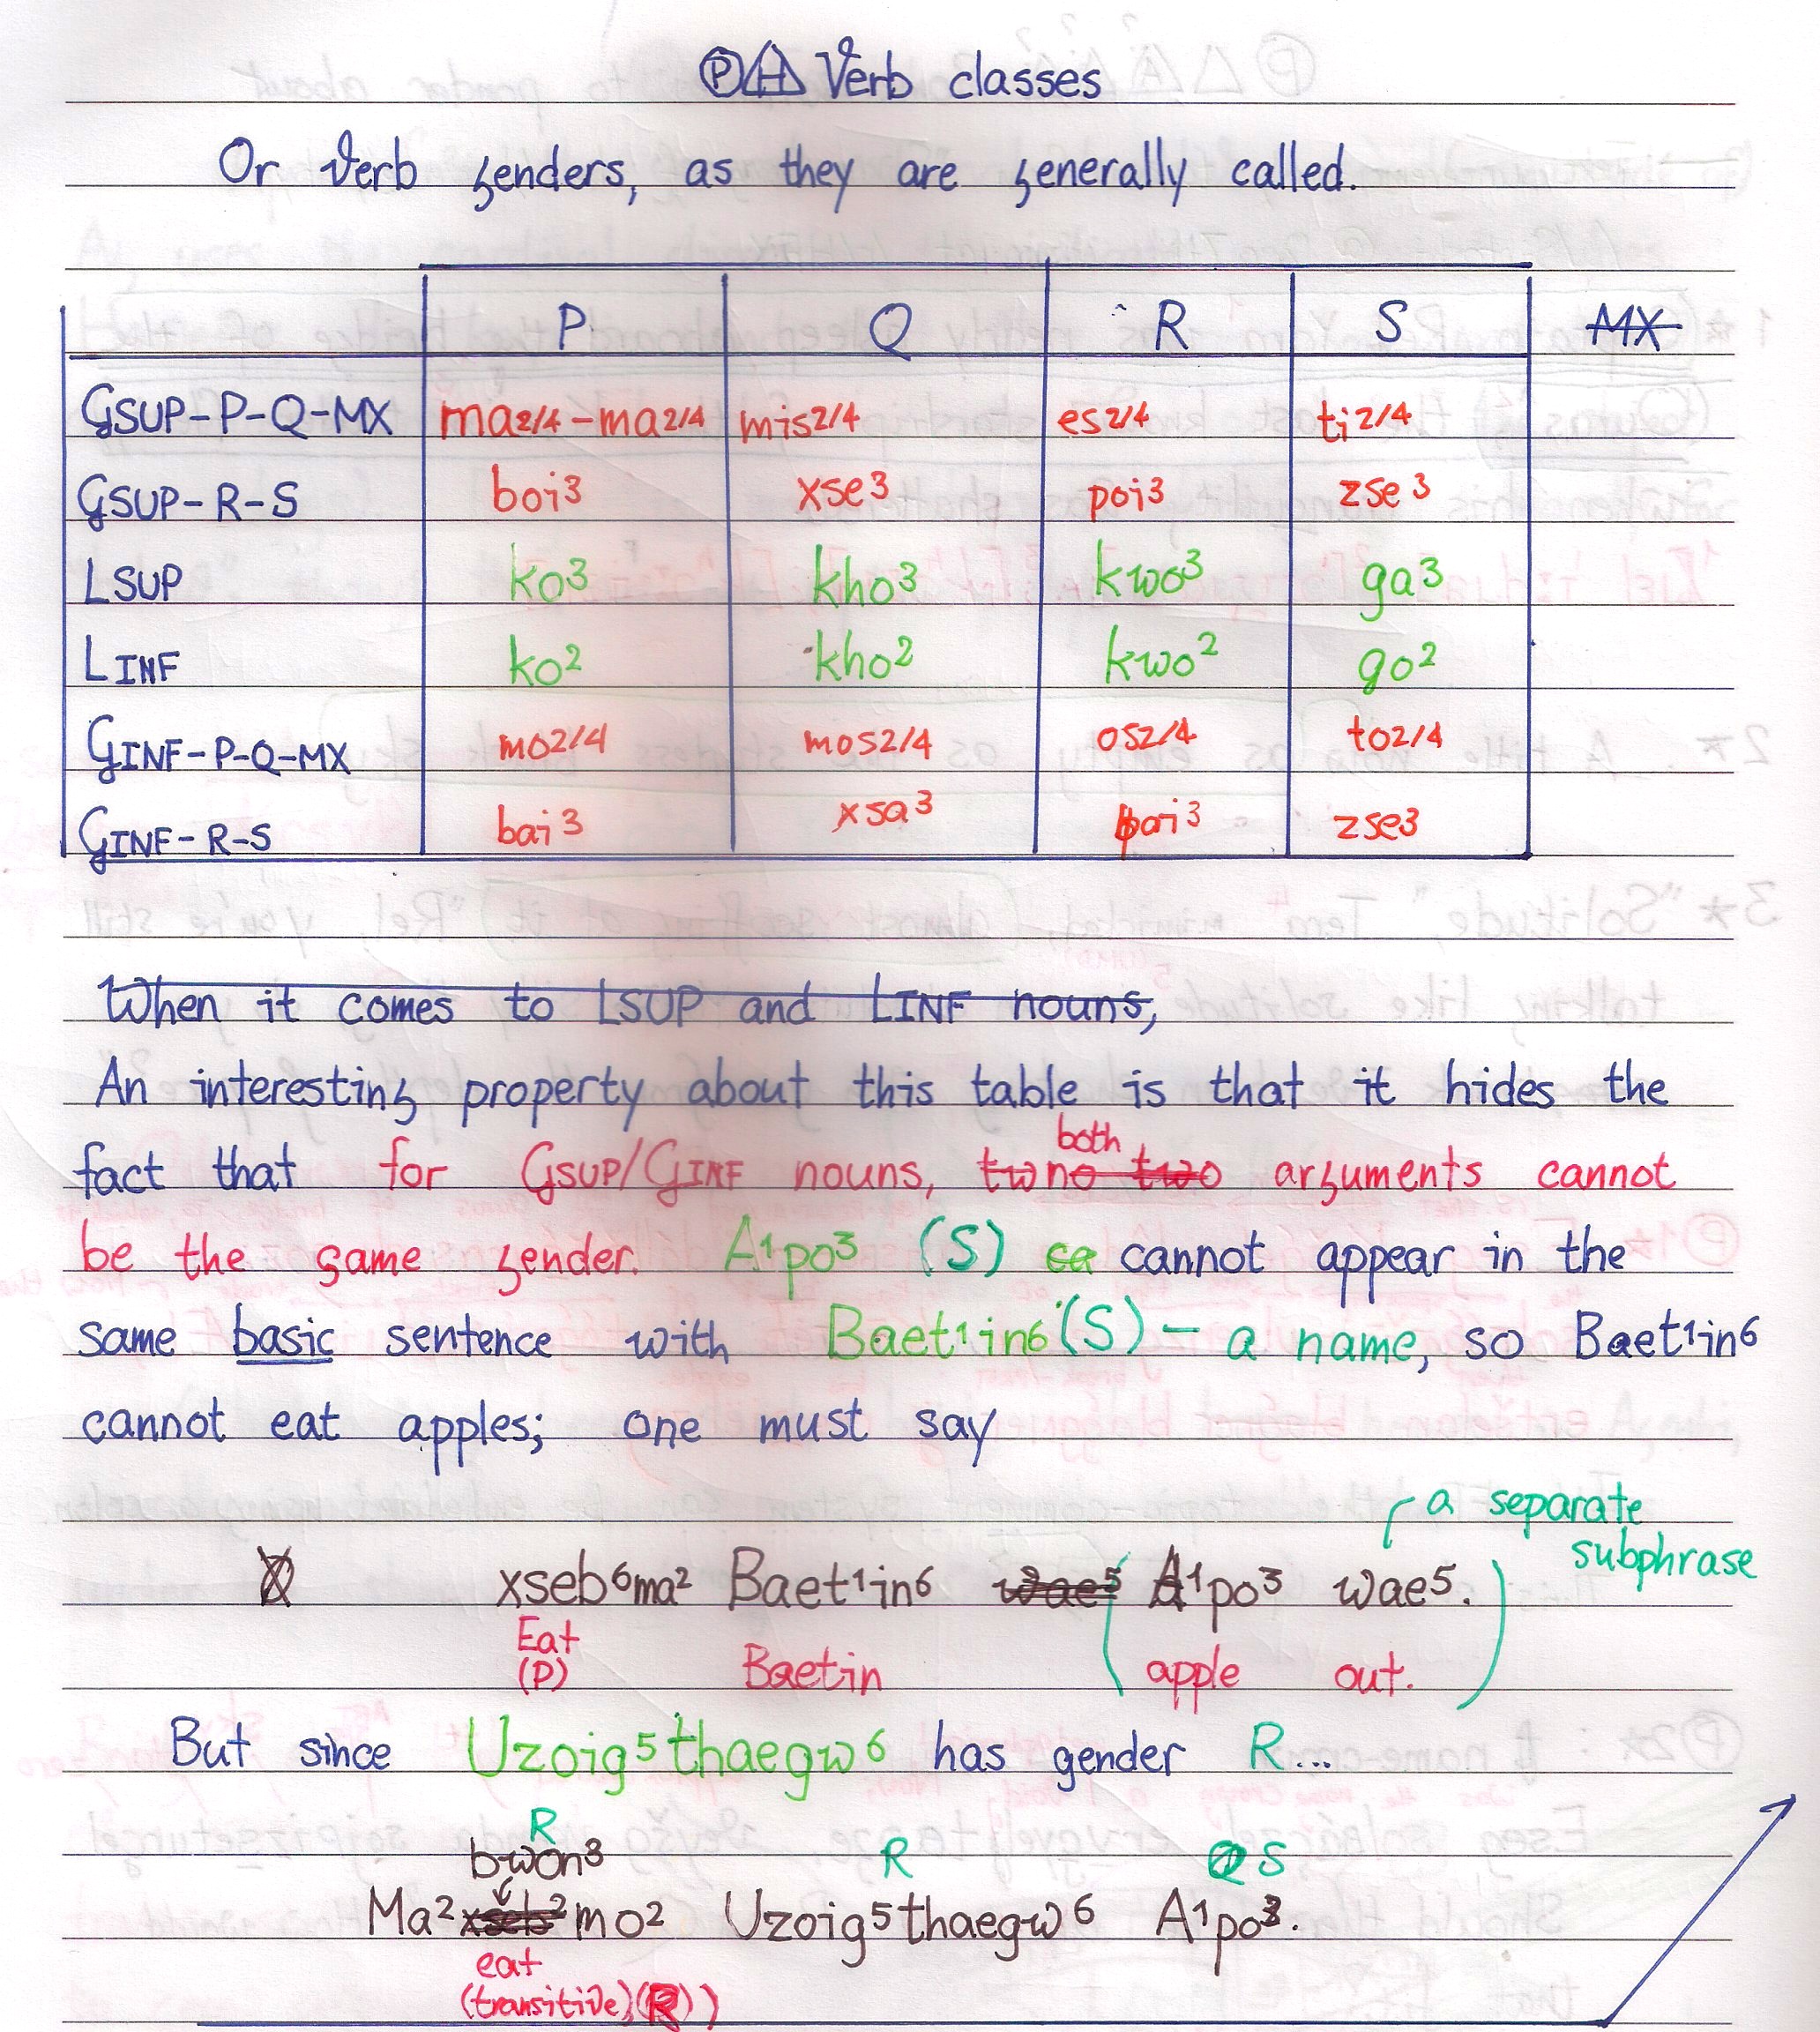 Ⓟ Verb classes
Or Verb genders, as they are generally called.
P Q R S MX
GSUP-P-Q-MX ma2/4-ma2/4 mis2/4 es2/4 ti2/4
GSUP-R-S boi3 xse3 poi3 zse3
LSUP ko3 kho3 kwo3 ga3
LINF ko2 kho2 kwo2 go2
GINF-P-Q-MX mo2/4 mos2/4 os2/4 to2/4
GINF-R-S bai3 xsa3 pai3 zse3
When it comes to LSUP and LINF nouns,
An interesting property about this table is that it hides the
both
fact that for GSUP/GINF nouns, two no two arguments cannot
be the same gender. A1po3 (S) ca cannot appear in the
same basic sentence with Baet1in6 (S) - a name, so Baet1in6
cannot eat apples; one must say
a separate
subphrase
xseb6ma2 Baet1in6 wae5 (A1po3 wae5.)
Eat Baetin apple out.
(P)
But since Uzoig5thaegw6 has gender R...
R
bwon3 R S
Ma2xseb2mo2 Uzoig5thaegw6 A1po3.
eat
(transitive)(R))